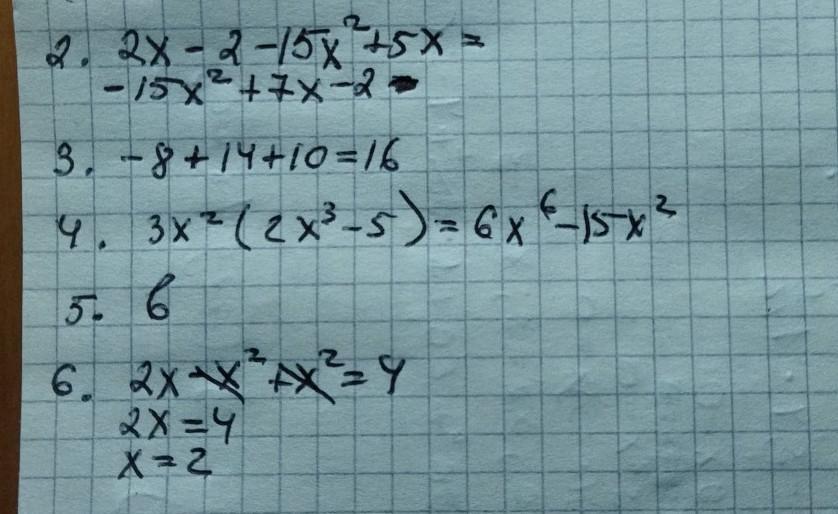 2. 2x - 2 - 15x² + 5x =
- 15x² + 7x - 2
3. - 8 + 14 + 10 = 16
4. 3x² (2x³ - 5) = 6x⁶ - 15x²
5. 6
6. 2x - x² + x² = 4
2x = 4
x = 2